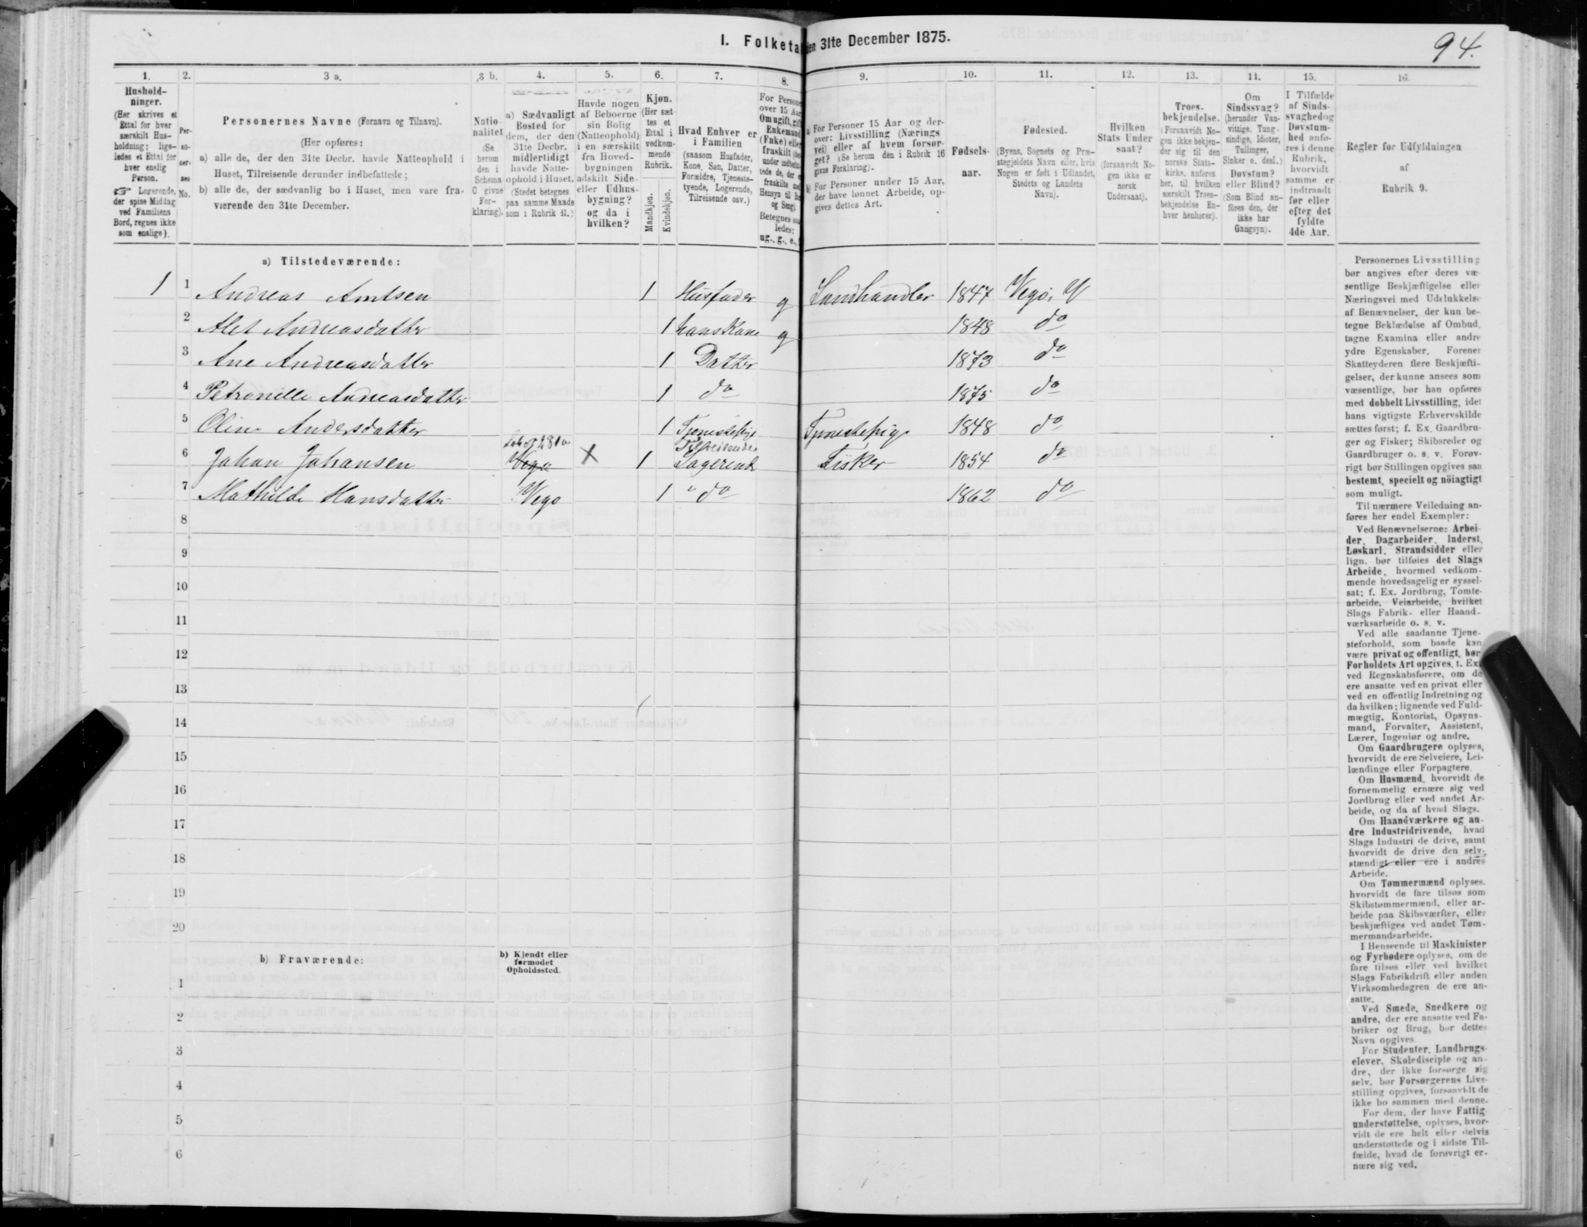 94.
I. Folketa
en 31te December 1875.
1. 2. 3 a. 3 b. 4. 5. 6. 7. 8. 9. 10. 11. 12. 13. 14. 15. 16.
Hushold-
ninger.
(Her skrives et
Ettal for hver
særskilt Hus-
holdning; lige-
ledes et Ettal for
hver enslig
Person.
Logerende,
der spise Middag
ved Familiens
Bord, regnes ikke
som enslige).
Per-
so-
ner-
nes
No.
Personernes Navne (Fornavn og Tilnavn).
(Her opføres:
a) alle de, der den 31te Decbr. havde Natteophold i
Huset, Tilreisende derunder indbefattede;
b) alle de, der sædvanlig bo i Huset, men vare fra-
værende den 31te December.
Natio-
nalitet
(Se
herom
den i
Schema
C givne
For-
klaring).
a) Sædvanligt
Bosted for
dem, der den
31te Decbr.
midlertidigt
havde Natte-
ophold i Huset.
(Stedet betegnes
paa samme Maade
som i Rubrik 11.)
Havde nogen
af Beboerne
sin Bolig
(Natteophold)
i en særskilt
fra Hoved-
bygningen
adskilt Side-
eller Udhus-
bygning?
og da i
hvilken?
Kjøn.
(Her sæt-
tes et
Ettal i
vedkom-
mende
Rubrik.
Mandkjøn.
Kvindekjøn.
Hvad Enhver er
i Familien
(saasom Husfader,
Kone, Søn, Datter,
Forældre, Tjeneste-
tyende, Logerende,
Tilreisende osv.)
For Persone
over 15 Aar
Om ugift, gift
Enkemand
(Enke) elle
fraskilt
Betegnes saa
ledes:
ug., g., e.,
a) For Personer 15 Aar og der-
over: Livsstilling (Nærings
vei) eller af hvem forsør-
get? (Se herom den i Rubrik 16
givne Forklaring).
b) For Personer under 15 Aar,
der have lønnet Arbeide, op-
gives dettes Art.
Fødsels-
aar.
Fødested.
(Byens, Sognets og Præ-
stegjeldets Navn eller, hvis
Nogen er født i Udlandet,
Stedets og Landets
Navn).
Hvilken
Stats Under
saat?
(forsaavidt No-
gen ikke er
norsk
Undersaat).
Troes-
bekjendelse.
(Forsaavidt No-
gen ikke bekjen-
der sig til den
norske Stats-
kirke, anføres
her, til hvilken
særskilt Troes-
bekjendelse En-
hver henhører).
Om
Sindssvag?
(herunder Van-
vittige, Tung-
sindige, Idioter,
Tullinger,
Sinker o. desl.)
Døvstum?
eller Blind?
(Som Blind an-
føres den, der
ikke har
Gangsyn).
I Tilfælde
af Sinds-
svaghed og
Døvstum-
hed anfø-
res i denne
Rubrik,
hvorvidt
samme er
indtraadt
før eller
efter det
fyldte
4de Aar.
Regler for Udfyldningen
af
Rubrik 9.
a) Tilstedeværende:
1 1 Andreas Amtsen 1 Husfader g Landhandler 1847 Vegø,
2 Alet Andreasdatter 1 hans Kone g 1848 do
3 Ane Andreasdatter 1 Datter 1873 do
4 Petronelle Andreasdatter 1 do 1875 do
5 Oline Andersdatter 1 Tjenestepige Tjenestepige 1848 do
Tilreisende
6 Johan Johansen Vega X 1 Fisker 1854 do
7 Mathilde Hansdatter Vego 1 " do 1862 do
8
9
10
11
12
13
14
15
16
17
18
19
20
b) Fraværende:
b) Kjendt eller
formodet
Opholdssted.
1
2
3
4
5
6
Personernes Livsstilling
bør angives efter deres væ-
sentlige Beskjæftigelse eller
Næringsvei med Udelukkelse
af Benævnelser, der kun be-
tegne Beklædelse af Ombud,
tagne Examina eller andre
ydre Egenskaber. Forener
Skatteyderen flere Beskjæfti-
gelser, der kunne ansees som
væsentlige, bør han opføres
med dobbelt Livsstilling, idet
hans vigtigste Erhvervskilde
sættes først; f. Ex. Gaardbru-
ger og Fisker; Skibsreder og
Gaardbruger o. s. v. Forøv-
rigt bør Stillingen opgives saa
bestemt, specielt og nøiagtigt
som muligt.
Til nærmere Veiledning an-
føres her endel Exempler:
Ved Benævnelserne: Arbei-
der, Dagarbeider, Inderst,
Løskarl, Strandsidder eller
lign. bør tilføies det Slags
Arbeide, hvormed vedkom-
mende hovedsagelig er syssel-
sat; f. Ex. Jordbrug, Tomte-
arbeide, Veiarbeide, hvilket
Slags Fabrik- eller Haand-
værksarbeide o. s. v.
Ved alle saadanne Tjene-
steforhold, som baade kan
være privat og offentligt, bør
Forholdets Art opgives, t. Ex
ved Regnskabsførere, om de
ere ansatte ved en privat eller
ved en offentlig Indretning og
da hvilken; lignende ved Fuld-
mægtig, Kontorist, Opsyns-
mand, Forvalter, Assistent,
Lærer, Ingeniør og andre.
Om Gaardbrugere oplyses,
hvorvidt de ere Selveiere, Lei-
lændinge eller Forpagtere.
Om Husmænd, hvorvidt de
fornemmelig ernære sig ved
Jordbrug eller ved andet Ar-
beide, og da af hvad Slags.
Om Haandværkere og an-
dre Industridrivende, hvad
Slags Industri de drive, samt
hvorvidt de drive den selv-
stændigt eller ere i andres
Arbeide.
Om Tømmermænd oplyses,
hvorvidt de fare tilsøs som
Skibstømmermænd, eller ar-
beide paa Skibsværfter, eller
beskjæftiges ved andet Tøm-
mermandsarbeide.
I Henseende til Maskinister
og Fyrbødere oplyses, om de
fare tilsøs eller ved hvilket
Slags Fabrikdrift eller anden
Virksomhedsgren de ere an-
satte.
Ved Smede, Snedkere og
andre, der ere ansatte ved Fa-
briker og Brug, bør dettes
Navn opgives.
For Studenter, Landbrugs-
elever, Skoledisciple og an-
dre, der ikke forsørge sig
selv, bør Forsørgerens Livs-
stilling opgives, forsaavidt de
ikke bo sammen med denne.
For dem, der have Fattig-
understøttelse, oplyses, hvor-
vidt de ere helt eller delvis
understøttede og i sidste Til-
fælde, hvad de forøvrigt er-
nære sig ved.